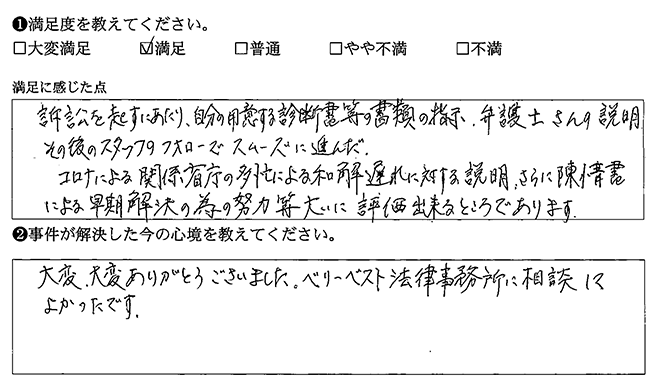 ❶満足度を教えてください。
□大変満足 ☑満足 □普通 □やや不満 □不満
満足に感じた点
訴訟を起すにあたり、自分の用意する診断書等の書類の指示、弁護士さんの説明
その後のスタッフのフォローでスムーズに進んだ。
コロナによる関係省庁の多忙による和解遅れに対する説明、さらに陳情書
による早期解決の為の努力等大いに評価出来るところであります。
❷事件が解決した今の心境を教えてください。
大変、大変ありがとうございました。ベリーベスト法律事務所に相談して
よかったです。